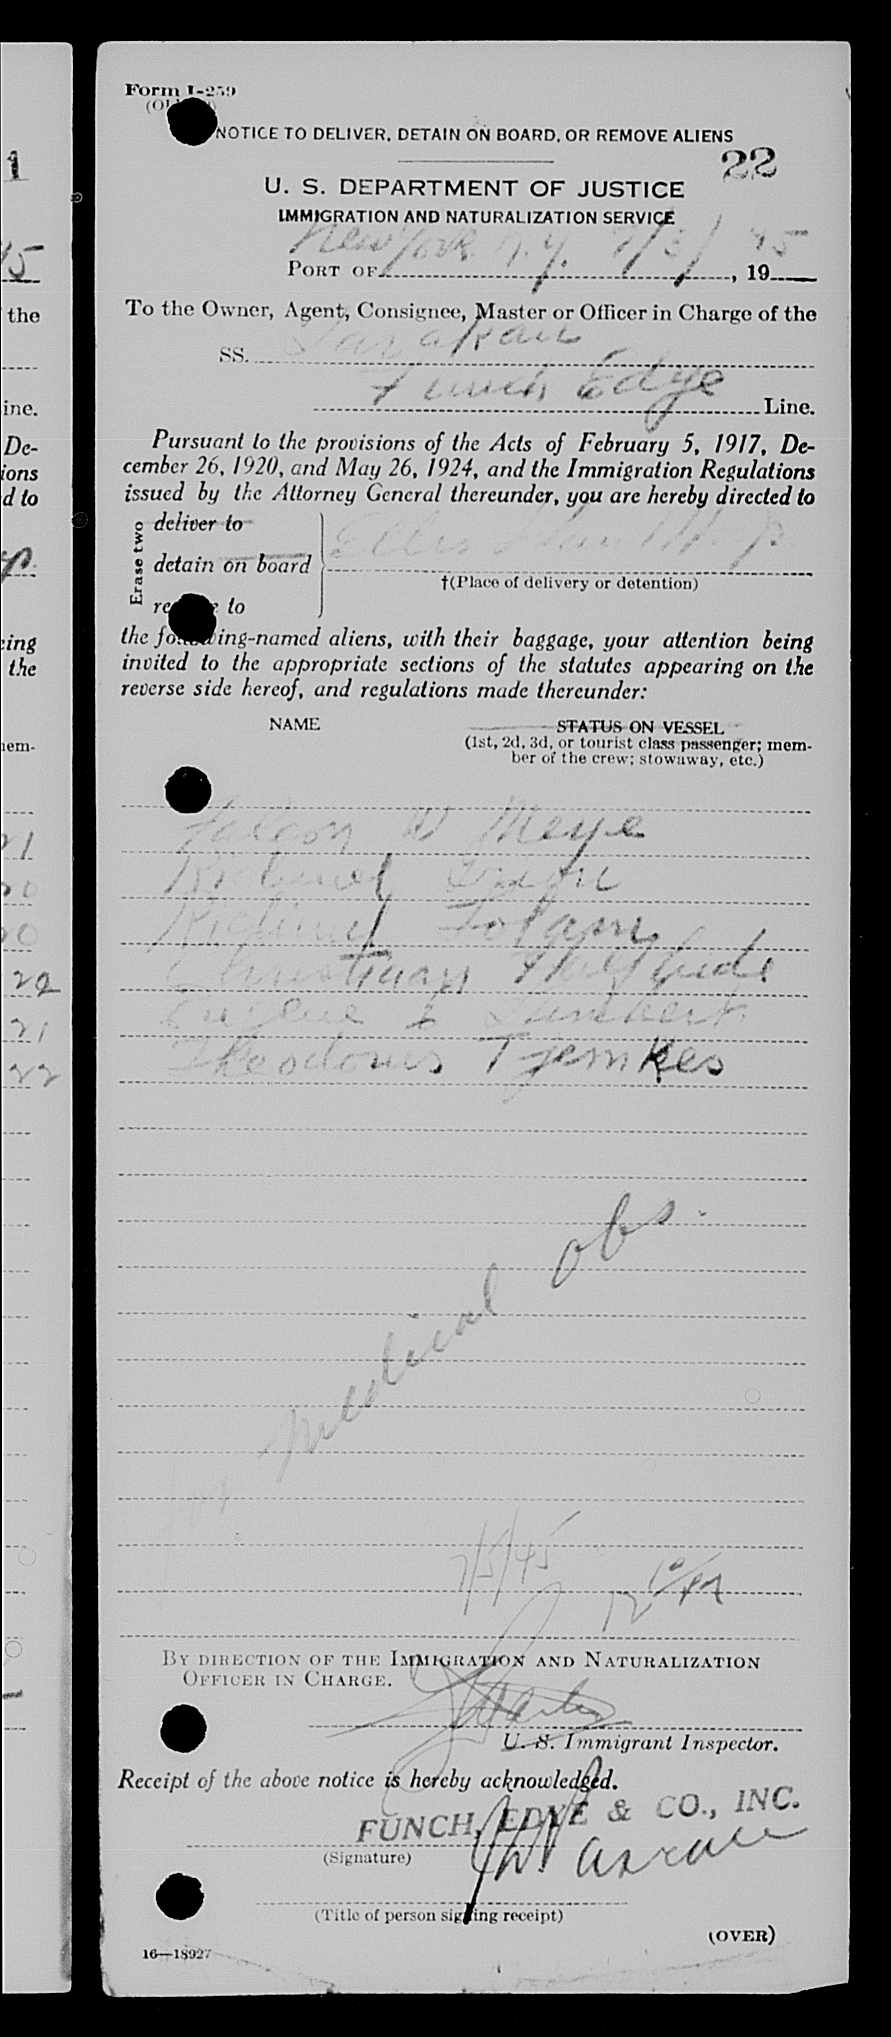 1
15
the
ine.
De-
ions
d to
eing
the
nem-
21
20
20
22
21
22
Form I-259
NOTICE TO DELIVER, DETAIN ON BOARD, OR REMOVE ALIENS
22
U. S. DEPARTMENT OF JUSTICE
IMMIGRATION AND NATURALIZATION SERVICE
PORT OF New York N.Y. 7/3/, 1945
To the Owner, Agent, Consignee, Master or Officer in Charge of the
SS. Tarakan
Funch Edye Line.
Pursuant to the provisions of the Acts of February 5, 1917, De-
cember 26, 1920, and May 26, 1924, and the Immigration Regulations
issued by the Attorney General thereunder, you are hereby directed to
Erase two
deliver to
detain on board Ellis Island Hosp
†(Place of delivery or detention)
to
the following-named aliens, with their baggage, your attention being
invited to the appropriate sections of the statutes appearing on the
reverse side hereof, and regulations made thereunder:
NAME STATUS ON VESSEL
(1st, 2d, 3d, or tourist class passenger; mem-
ber of the crew; stowaway, etc.)
Meye
Richard
Richard
Christiaan
Eugene
Theodorus Tjemkes
for medical obs.
7/5/45
12
BY DIRECTION OF THE IMMIGRATION AND NATURALIZATION
OFFICER IN CHARGE.
U. S. Immigrant Inspector.
Receipt of the above notice is hereby acknowledged.
FUNCH, EDYE & CO., INC.
(Signature)
(Title of person signing receipt)
(OVER)
16—18927